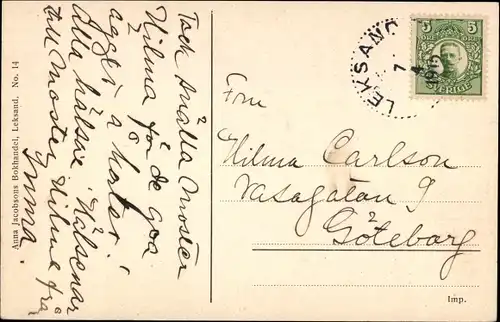 Tack snälla Moster
Hilma för de goa
ägget o kortet.
Alla hälsar. Hälsningar
till Moster Hilma från
Gumma.
Anna Jacobsons Bokhandel, Leksand. No. 14
LEKSAND
7 4
5 5
SVERIGE
Fru
Hilma Carlson
Vasagatan 9
Göteborg
Imp.